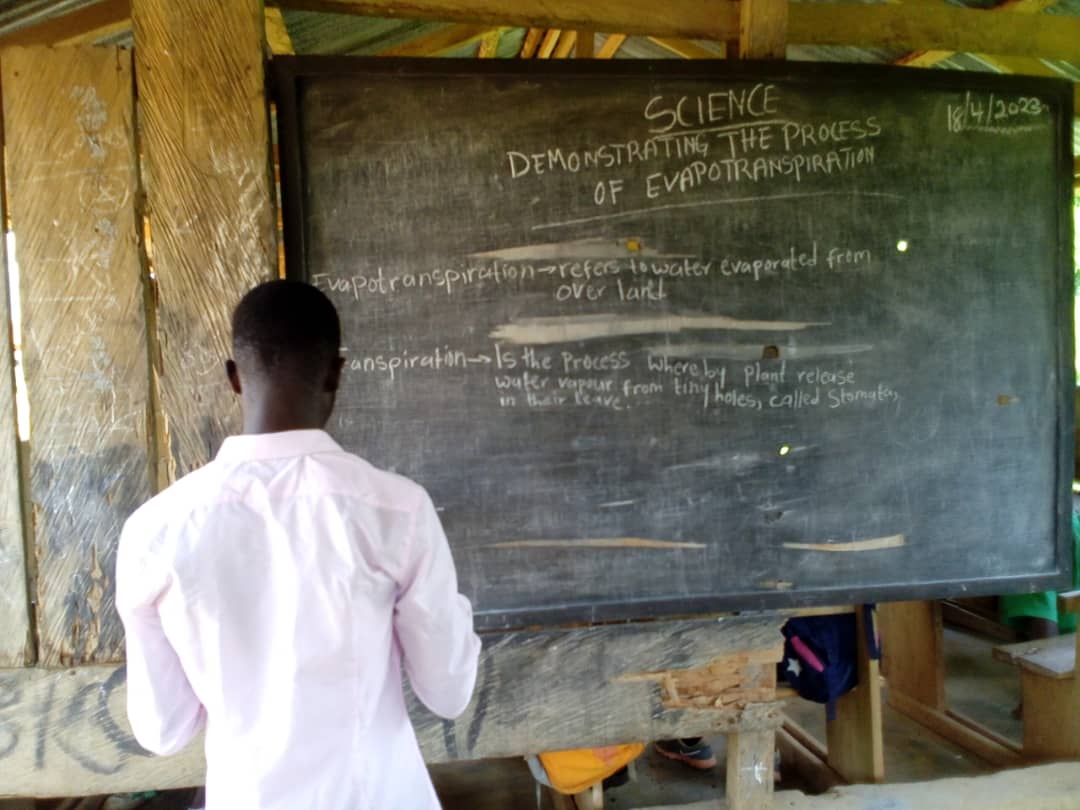 SCIENCE
18/4/2023
DEMONSTRATING THE PROCESS
OF EVAPOTRANSPIRATION
Evapotranspiration→refers to water evaporated from
over land
anspiration→Is the Process whereby plant release
water vapour from tiny holes, called Stomata,
in their leave.